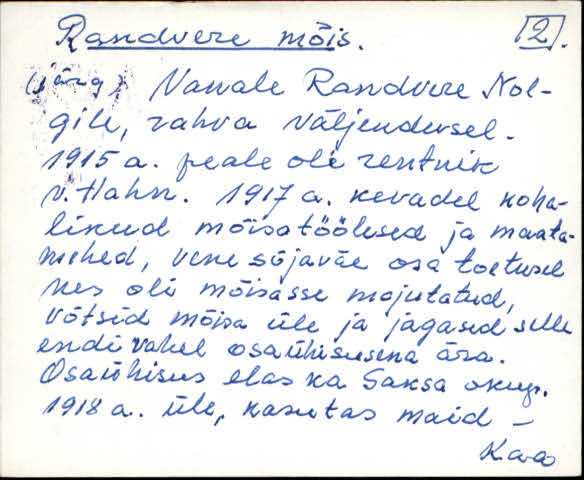 Randvere mõis. [2].
(järg) Vanale Randvere Nol-
gile, rahva väljendusel.
1915 a. peale oli rentnik
v. Hahn. 1917 a. kevadel koha-
likud mõisatöölised ja maata-
mehed, vene sõjaväe osa toetusel
kes oli mõisasse majutatud,
võtsid mõisa üle ja jagasid selle
endi vahel osaühisusena ära.
Osaühisus elas ka Saksa okup.
1918 a. üle, kasutas maid –